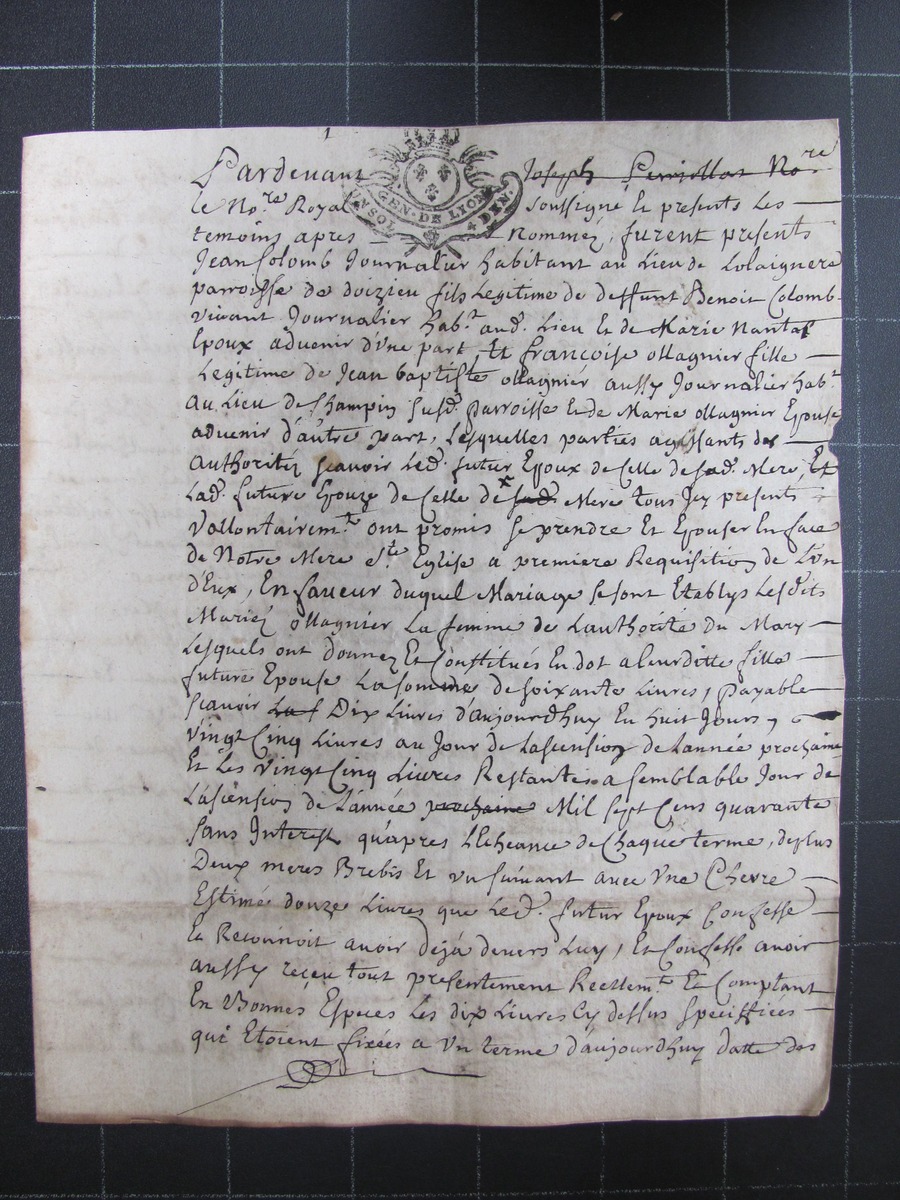 1
Pardevant Joseph Perrillon No.re
GEN. DE LYON
UN SOL 4 DEN.
le No.re Royal soussigne Et presents Les
temoins apres Nommez, furent presents
Jean Colomb Journalier habitant au Lieu de Lolaignere
parroisse de doizieu fils Legitime de deffunt Benoit Colomb
vivant Journalier hab.t aud. Lieu Et de Marie Nantas
Epoux advenir d'vne part, Et françoise ollagnier fille
Legitime de Jean baptiste ollagnier aussy Journalier hab.t
au Lieu de Champin susd. parroisse Et de Marie ollagnier Epouse
advenir d'autre part, Lesquelles parties agissants des
authoritéz scavoir Led. futur Epoux de Celle de sad. Mere, Et
Lad. future Epouze de Celle de x sad. Mere tous Jcy presents
Vollontairem.t ont promis se prendre Et Epouser En face
de Notre Mere s.te Eglise a premiere Requisition de L'vn
d'Eux, En faveur duquel Mariage se sont Etablys Lesdits
Mariez ollagnier La femme de Lauthorité du Mary
Lesquels ont donnez Et Constitués En dot a leurditte fille
future Epouse La somme de soixante Livres, payable
scavoir Dix Livres d'aujourdhuy En huit Jours,
vingt Cinq Livres au Jour de Lascension de Lannée prochaine
Et Les vingt Cinq Livres Restantes a semblable Jour de
Lascension de L'année prochaine Mil sept Cens quarante
sans Interest qu'apres LEcheance de Chaque terme, de plus
Deux meres Brebis Et vn suivant avec Vne Chevre
Estimé douze Livres que Led. futur Epoux Confesse
Et Reconnoit avoir déja devers Luy, Et Confesse avoir
aussy reçeu tout presentement Reellem.t Et Comptant
En Bonnes Especes Les dix Livres Cy dessus speciffiées
qui Etoient fixées a Vn terme d'aujourdhuy datte des